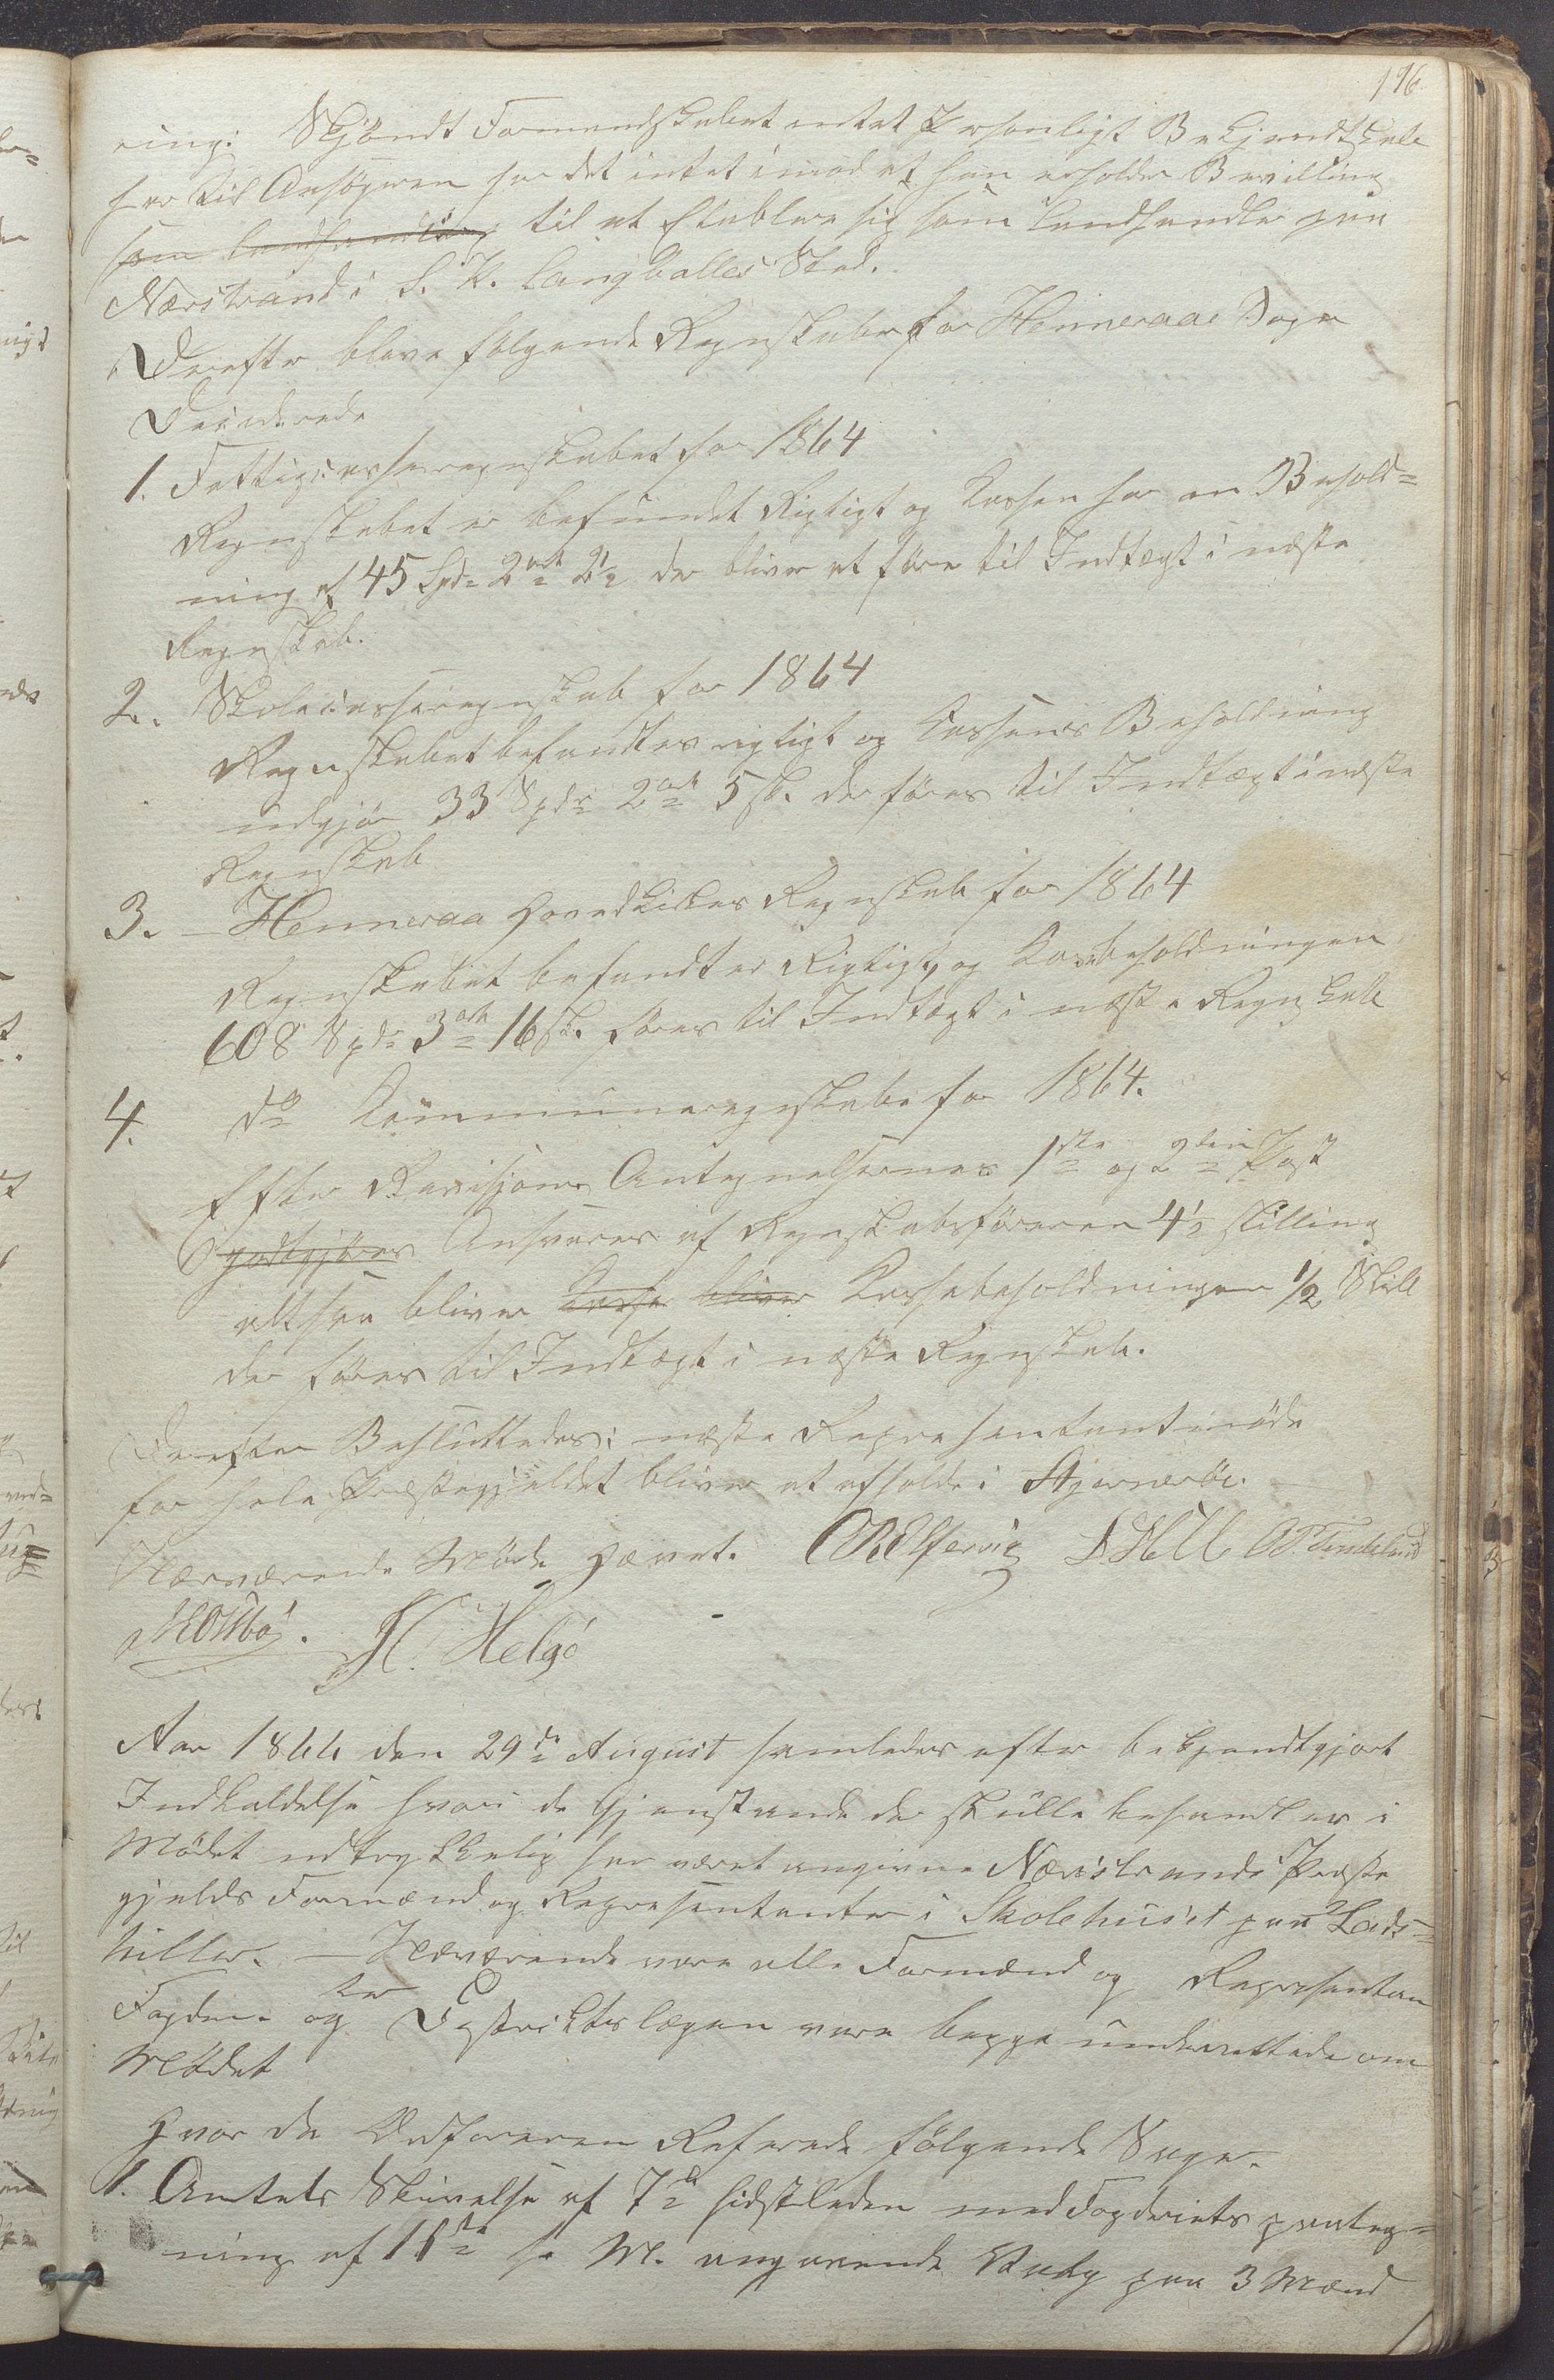 196
ring: Skjöndt Formandskabet intet Personligt Bekjendtskab
har til Ansögeren har det intet imod at han erholder Bevilling
som landhandler til at Etablere sig som Landhandler paa
Nærstrand i S. K. Langballes Sted.
Derefter bleve fölgende Regnskaber for Hinneraae Sogn
Deciderede
1. Fattigcasseregnskabet for 1864
Regnskabet er befundet Rigtigt og Kassen har en Behold=
ning af 45 Spd= 2 ort 2½ der bliver at före til Indtægt i næste
Regnskab.
2. Skolecasseregnskab for 1864
Regnskabet befandtes rigtigt og Cassens Beholdning
udgjör 33 Spdr 2 ort 5 sk. der föres til Indtægt i næste
Regnskab
3. – Hinneraa Hovedkirkes Regnskab for 1864
Regnskabet befandtes Rigtigt, og Kassebeholdningen
608 Spdr 3 ort 16 sk. föres til Indtægt i næste Regnskab
4. do Kommuneregnskabe for 1864.
Efter Revisjons Antegnelsernes 1ste og 2den Post
godtgjöres Ansvares af Regnskabsföreren 4½ skilling
altsaa bliver Kasse bliver Kassebeholdningen ½ Skill
der föres til Indtægt i næste Regnskab.
Derefter Besluttedes: næste Representantmöde
for hele Præstegjeldet bliver at afholde i Stjerneröe.
Nærværende Möde Hævet.
H. Helgö
Aar 1866 den 29de August samledes efter bekjendtgjort
Indkaldelse hvori de Gjenstande der skulle behandles i
Mödet udtrykkelig har været angivne Nærstrands Præste
gjelds Formænd og Representanter i Skolehuset paa Lads=
hiller. – Nærværende vare alle Formænd og Representan
ter
Fogden og Destriktslægen vare begge underrettede om
Mödet
Hvor da Ordföreren Referede fölgende Sager.
1. Amtets Skrivelse af 7de sidstleden med Fogderiets paateg=
ning af 11te s. M. angaaende Valg paa 3 Mænd